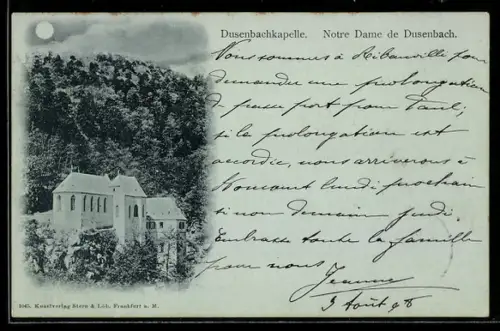 Dusenbachkapelle. Notre Dame de Dusenbach.
Nous sommes à Ribauvillé pour
demander une prolongation
de passe port pour Paul;
si la prolongation est
accordée, nous arriverons à
Nomeant lundi prochain
si non demain jeudi
Embrasse toute la famille
pour nous
Jeanne
3 Août 98
1045. Kunstverlag Stern & Löb, Frankfurt a. M.